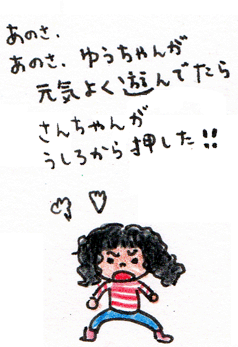 あのさ、
あのさ、ゆうちゃんが
元気よく遊んでたら
さんちゃんが
うしろから押した!!